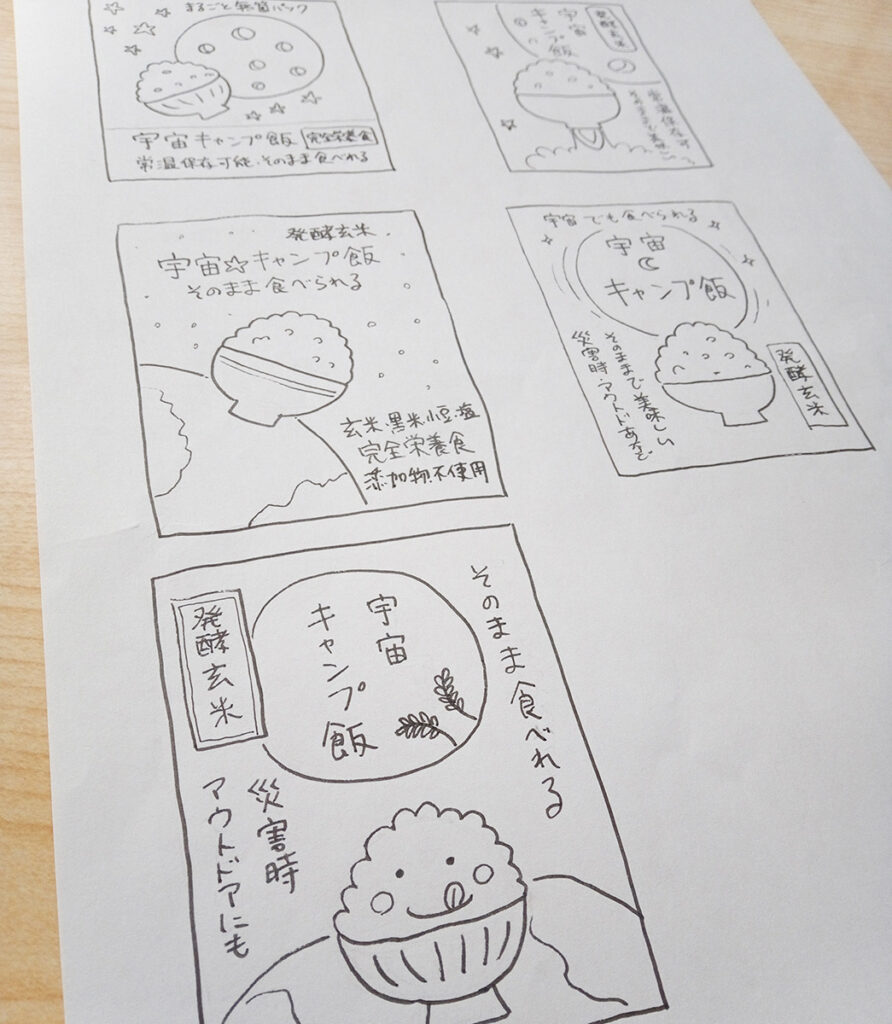 まるごと無菌パック
宇宙キャンプ飯
完全栄養食
常温保存可能・そのまま食べれる
発酵玄米
宇宙
キャンプ飯
常温保存可
発酵玄米
宇宙☆キャンプ飯
そのまま食べられる
玄米・黒米・小豆・塩
完全栄養食
添加物不使用
宇宙でも食べられる
宇宙
キャンプ飯
発酵玄米
そのままで美味しい
災害時・アウトドアなど
そのまま食べれる
宇宙
キャンプ飯
発酵玄米
災害時
アウトドアにも